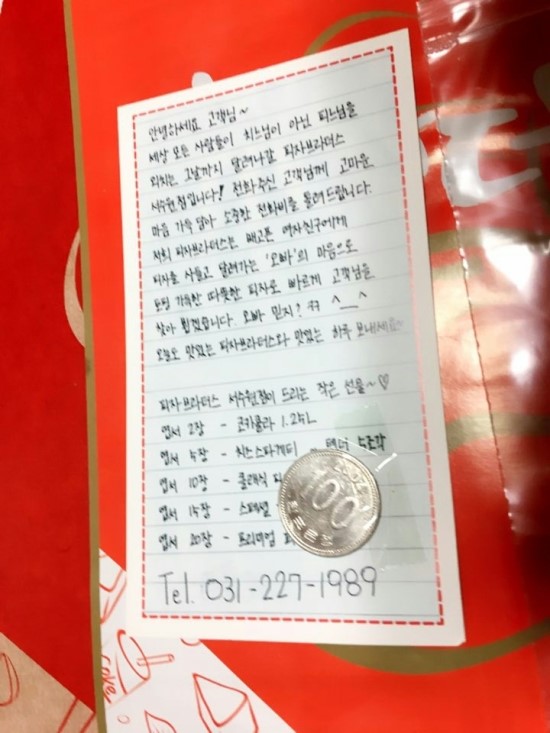 안녕하세요 고객님~
세상 모든 사람들이 치느님이 아닌 피느님을
외치는 그날까지 달려나갈 피자브라더스
서수원점입니다! 전화주신 고객님께 고마운
마음 가득 담아 소중한 전화비를 돌려드립니다.
저희 피자브라더스는 배고픈 여자친구에게
피자를 사들고 달려가는 '오빠'의 마음으로
토핑 가득한 따뜻한 피자로 빠르게 고객님을
찾아 뵙겠습니다. 오빠 믿지? ㅋㅋ ^__^
오늘도 맛있는 피자브라더스와 맛있는 하루 보내세요~
피자브라더스 서수원점이 드리는 작은 선물~♡
엽서 2장 - 코카콜라 1.25L
엽서 5장 - 치즈스파게티 텐더 5조각
엽서 10장 - 클래식
엽서 15장 - 스페셜
엽서 20장 - 프리미엄
100
Tel. 031-227-1989
cake